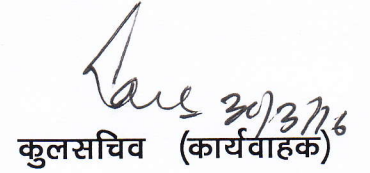 30/3/16
कुलसचिव (कार्यवाहक)